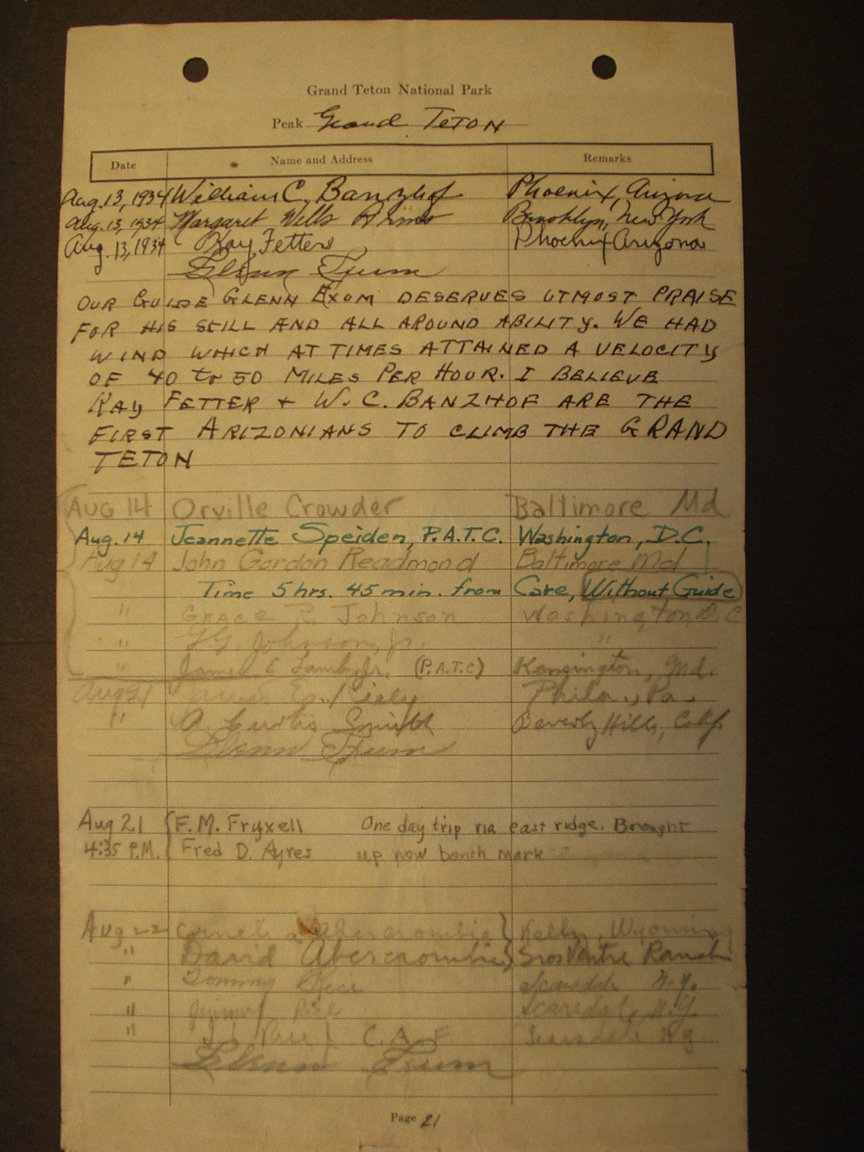 Grand Teton National Park
Peak Grand Teton
Date Name and Address Remarks
Aug. 13, 1934 William C. Banzhof Phoenix, Arizona
Aug. 13, 1934 Margaret Wells Brooklyn, New York
Aug. 13, 1934 Ray Fetters Phoenix Arizona
Glenn Exum
OUR GUIDE GLENN EXOM DESERVES UTMOST PRAISE
FOR HIS STILL AND ALL AROUND ABILITY. WE HAD
WIND WHICH AT TIMES ATTAINED A VELOCITY
OF 40 to 50 MILES PER HOUR. I BELIEVE
RAY FETTER + W. C. BANZHOF ARE THE
FIRST ARIZONIANS TO CLIMB THE GRAND
TETON
AUG 14 Orville Crowder Baltimore Md
Aug. 14 Jeannette Speiden, P.A.T.C. Washington, D.C.
Aug 14 John Gordon Readmond Baltimore Md
Time 5 hrs. 45 min. from Cave, Without Guide
" GRACE R. Johnson Washington D.C
" Johnson, Jr. "
" James E. Lamb, Jr. (P.A.T.C) Kensington, Md.
Aug 21 Phila., Pa.
" A. Curtis Smith Beverly Hills, Calif.
Glenn Exum
Aug 21 F. M. Fryxell One day trip via east ridge. Brought
4:35 P.M. Fred D. Ayres up new bench mark
Aug 22 Cornelia Abercrombie Kelly, Wyoming
" David Abercrombie Gros Ventre Ranch
" Tommy Rice Scarsdale N.Y.
" Jimmy Rice Scarsdale, N.Y.
" Rice Scarsdale N.Y.
Glenn Exum
Page 21